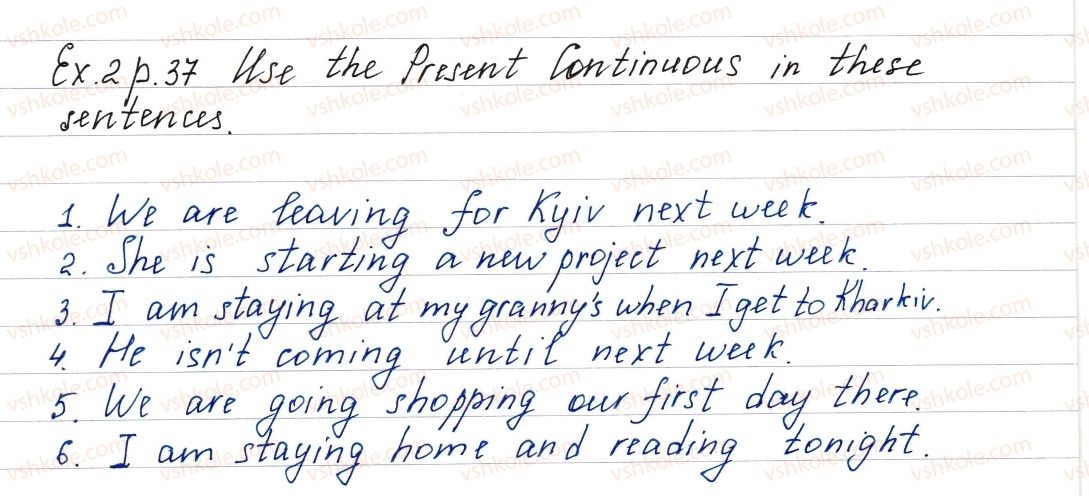 Ex.2 p.37 Use the Present Continuous in these
sentences.
1. We are leaving for Kyiv next week.
2. She is starting a new project next week.
3. I am staying at my granny's when I get to Kharkiv.
4. He isn't coming until next week.
5. We are going shopping our first day there.
6. I am staying home and reading tonight.